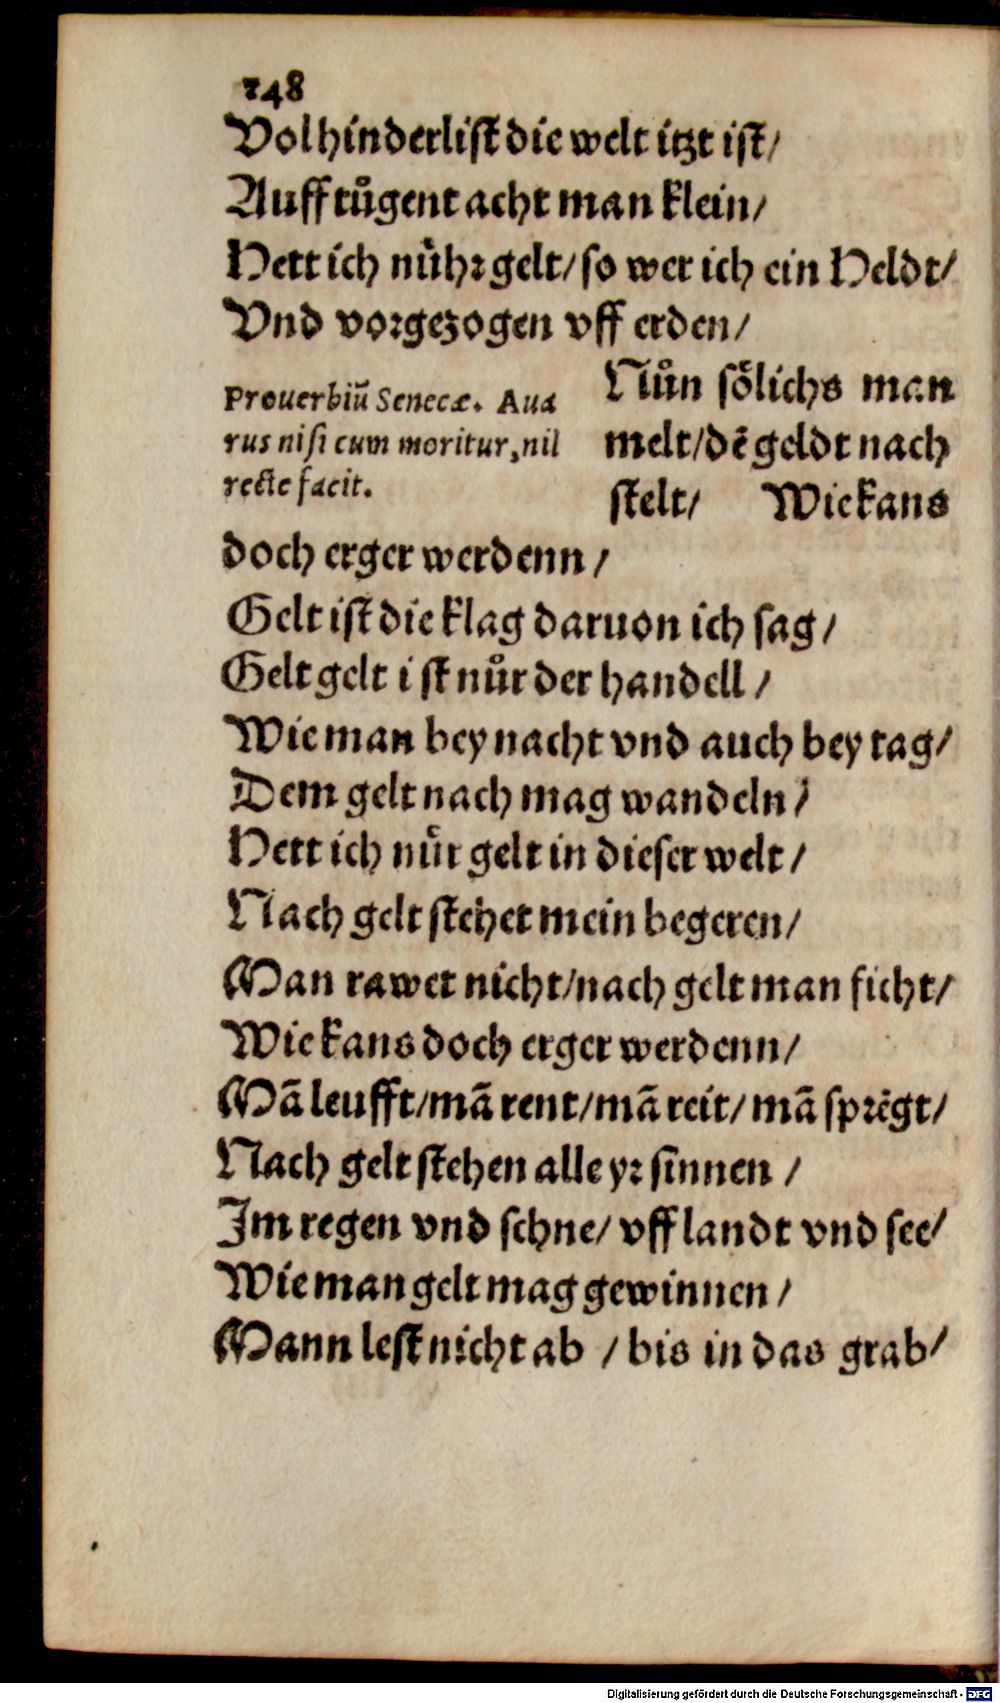 248
Vol hinderlist die welt itzt ist/
Auff tůgent acht man klein/
Hett ich nůhr gelt/ so wer ich ein Heldt/
Vnd vorgezogen vff erden/
Prouerbiũ Senecæ. Aua
rus nisi cum moritur, nil
recte facit.
Nůn sőlichs man
melt/ dẽ geldt nach
stelt/ Wie kans
doch erger werdenn /
Gelt ist die klag daruon ich sag/
Gelt gelt i st nůr der handell /
Wie man bey nacht vnd auch bey tag/
Dem gelt nach mag wandeln /
Hett ich nůr gelt in dieser welt /
Nach gelt stehet mein begeren/
Man rawet nicht/ nach gelt man ficht/
Wie kans doch erger werdenn/
Mã leufft/ mã rent/ mã reit/ mã sprẽgt/
Nach gelt stehen alle yr sinnen /
Im regen vnd schne/ vff landt vnd see/
Wie man gelt mag gewinnen /
Mann lest nicht ab / bis in das grab/
Digitalisierung gefördert durch die Deutsche Forschungsgemeinschaft - DFG